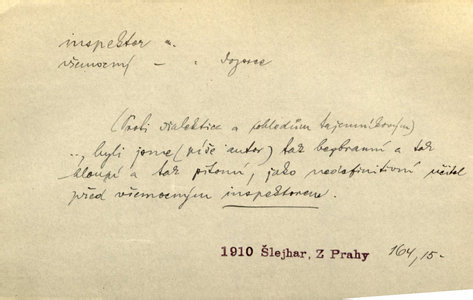 inspektor m.
všemocný – " dozorce
(Proti dialektice a pohledům tajemníkovým)
.., byli jsme (píše autor) tak bezbranní a tak
hloupí a tak pitomí, jako nedefinitivní učitel
před všemocným inspektorem.
1910 Šlejhar, Z Prahy 164,15-